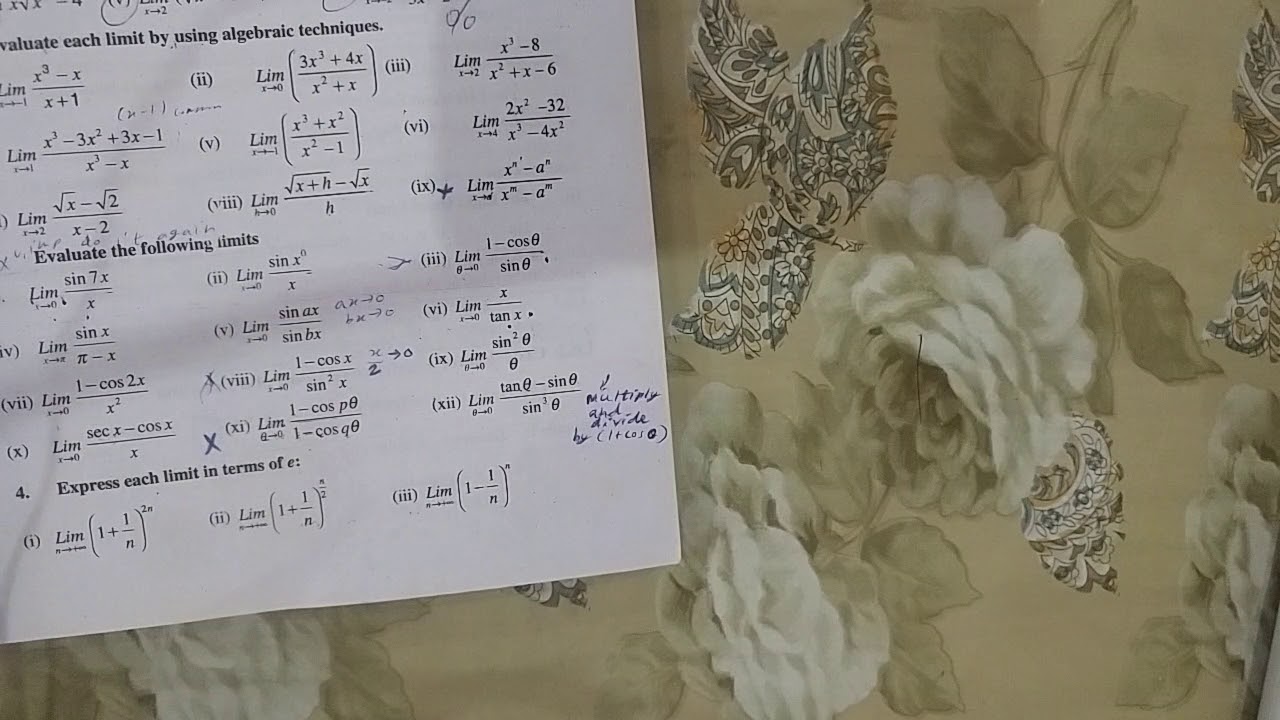 x→2
%
valuate each limit by using algebraic techniques.
Lim x→-1 (x³ − x)/(x + 1) (ii) Lim x→0 ((3x³ + 4x)/(x² + x)) (iii) Lim x→2 (x³ − 8)/(x² + x − 6)
(x-1) common
Lim x→1 (x³ − 3x² + 3x − 1)/(x³ − x) (v) Lim x→-1 ((x³ + x²)/(x² − 1)) (vi) Lim x→4 (2x² − 32)/(x³ − 4x²)
) Lim x→2 (√x − √2)/(x − 2) (viii) Lim h→0 (√(x + h) − √x)/h (ix) Lim x→a (xⁿ − aⁿ)/(xᵐ − aᵐ)
imp do it again
Evaluate the following limits
Lim x→0 sin 7x/x (ii) Lim x→0 sin x⁰/x (iii) Lim θ→0 (1 − cosθ)/sinθ
iv) Lim x→π sin x/(π − x) (v) Lim x→0 sin ax/sin bx ax→0 bx→0 (vi) Lim x→0 x/tan x
(vii) Lim x→0 (1 − cos 2x)/x² x (viii) Lim x→0 (1 − cos x)/sin² x x/2→0 (ix) Lim θ→0 sin² θ/θ
(x) Lim x→0 (sec x − cos x)/x x (xi) Lim θ→0 (1 − cos pθ)/(1 − cos qθ) (xii) Lim θ→0 (tan θ − sin θ)/sin³ θ
multiply
and
divide
by (1+cosθ)
4. Express each limit in terms of e:
(i) Lim n→+∞ (1 + 1/n)²ⁿ (ii) Lim n→+∞ (1 + 1/n)^(n/2) (iii) Lim n→+∞ (1 − 1/n)ⁿ